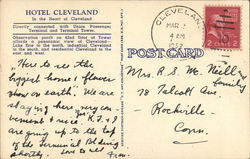 HOTEL CLEVELAND
In the Heart of Cleveland
Directly connected with Union Passenger
Terminal and Terminal Tower.
Observation porch on 42nd floor of Tower
affords a panoramic view of Cleveland—
Lake Erie to the north, industrial Cleveland
to the south, and residential Cleveland to the
east and west.
Here to see the
biggest home & flower
show on earth. We are
staying here very con-
venient & nice.
are going up to the top
of the terminal bldg
shortly. Love to all
CLEVELAND
MAR
4 AM
POST CARD
Mrs. R. S. Mc Neill &
family
78 Talcott Ave
Rockville
Conn.